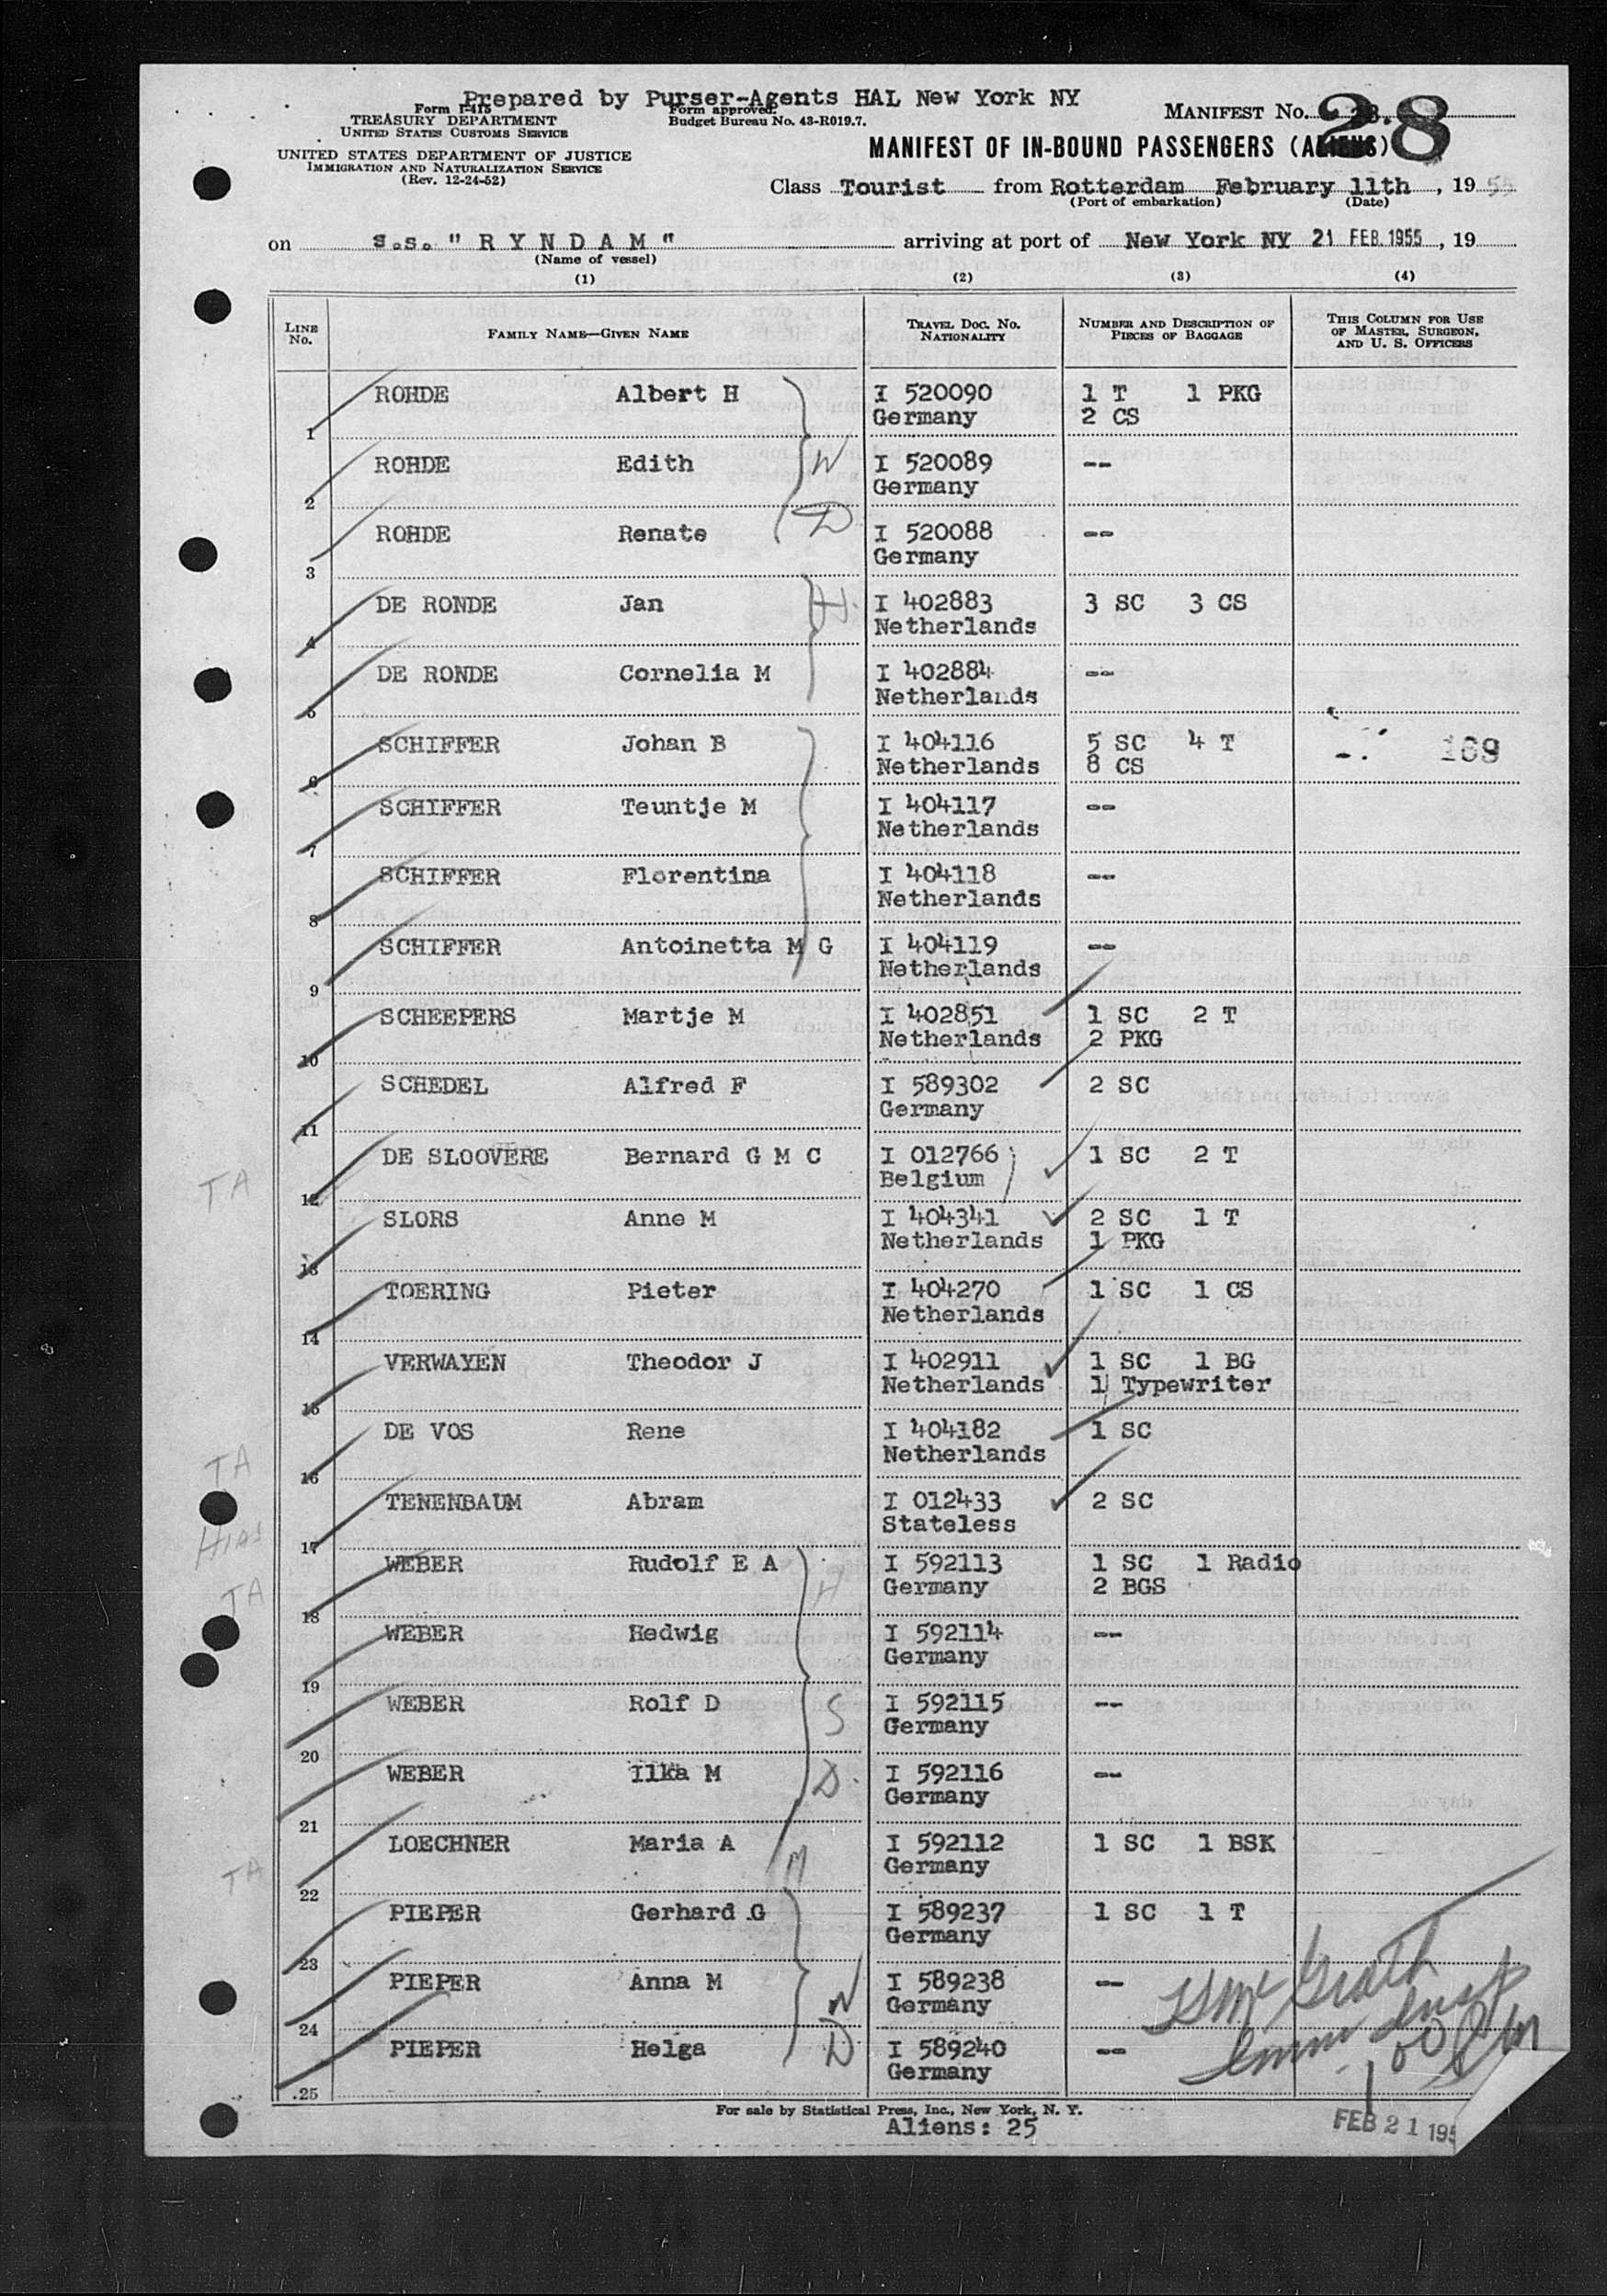 Prepared by Purser-Agents HAL New York NY
Form I-415
TREASURY DEPARTMENT
UNITED STATES CUSTOMS SERVICE
UNITED STATES DEPARTMENT OF JUSTICE
IMMIGRATION AND NATURALIZATION SERVICE
(Rev. 12-24-52)
Form approved.
Budget Bureau No. 43-R019.7.
MANIFEST No. 28
MANIFEST OF IN-BOUND PASSENGERS (ALIENS)
Class Tourist from Rotterdam February 11th, 1955
(Port of embarkation) (Date)
on s.s. "RYNDAM" arriving at port of New York NY 21 FEB. 1955, 19
(Name of vessel)
(1) (2) (3) (4)
LINE No. FAMILY NAME—GIVEN NAME TRAVEL DOC. NO. NATIONALITY NUMBER AND DESCRIPTION OF PIECES OF BAGGAGE THIS COLUMN FOR USE OF MASTER, SURGEON, AND U. S. OFFICERS
ROHDE Albert H I 520090 1 T 1 PKG
1 Germany 2 CS
ROHDE Edith W I 520089 --
2 Germany
ROHDE Renate D I 520088 --
3 Germany
DE RONDE Jan H. I 402883 3 SC 3 CS
4 Netherlands
DE RONDE Cornelia M I 402884 --
5 Netherlands
SCHIFFER Johan B I 404116 5 SC 4 T 169
6 Netherlands 8 CS
SCHIFFER Teuntje M I 404117 --
7 Netherlands
SCHIFFER Florentina I 404118 --
8 Netherlands
SCHIFFER Antoinetta M G I 404119 --
9 Netherlands
SCHEEPERS Martje M I 402851 1 SC 2 T
10 Netherlands 2 PKG
SCHEDEL Alfred F I 589302 2 SC
11 Germany
DE SLOOVERE Bernard G M C I 012766 1 SC 2 T
TA 12 Belgium
SLORS Anne M I 404341 2 SC 1 T
13 Netherlands 1 PKG
TOERING Pieter I 404270 1 SC 1 CS
14 Netherlands
VERWAYEN Theodor J I 402911 1 SC 1 BG
15 Netherlands 1 Typewriter
DE VOS Rene I 404182 1 SC
TA 16 Netherlands
TENENBAUM Abram I 012433 2 SC
HIAS 17 Stateless
WEBER Rudolf E A H I 592113 1 SC 1 Radio
TA 18 Germany 2 BGS
WEBER Hedwig I 592114 --
19 Germany
WEBER Rolf D S I 592115 --
20 Germany
WEBER Ilka M D. I 592116 --
21 Germany
LOECHNER Maria A M I 592112 1 SC 1 BSK
TA 22 Germany
PIEPER Gerhard G I 589237 1 SC 1 T
23 Germany
PIEPER Anna M W I 589238 --
24 Germany
PIEPER Helga D I 589240 --
25 Germany
McGrath
Imm Insp
For sale by Statistical Press, Inc., New York, N. Y.
Aliens: 25
FEB 21 195